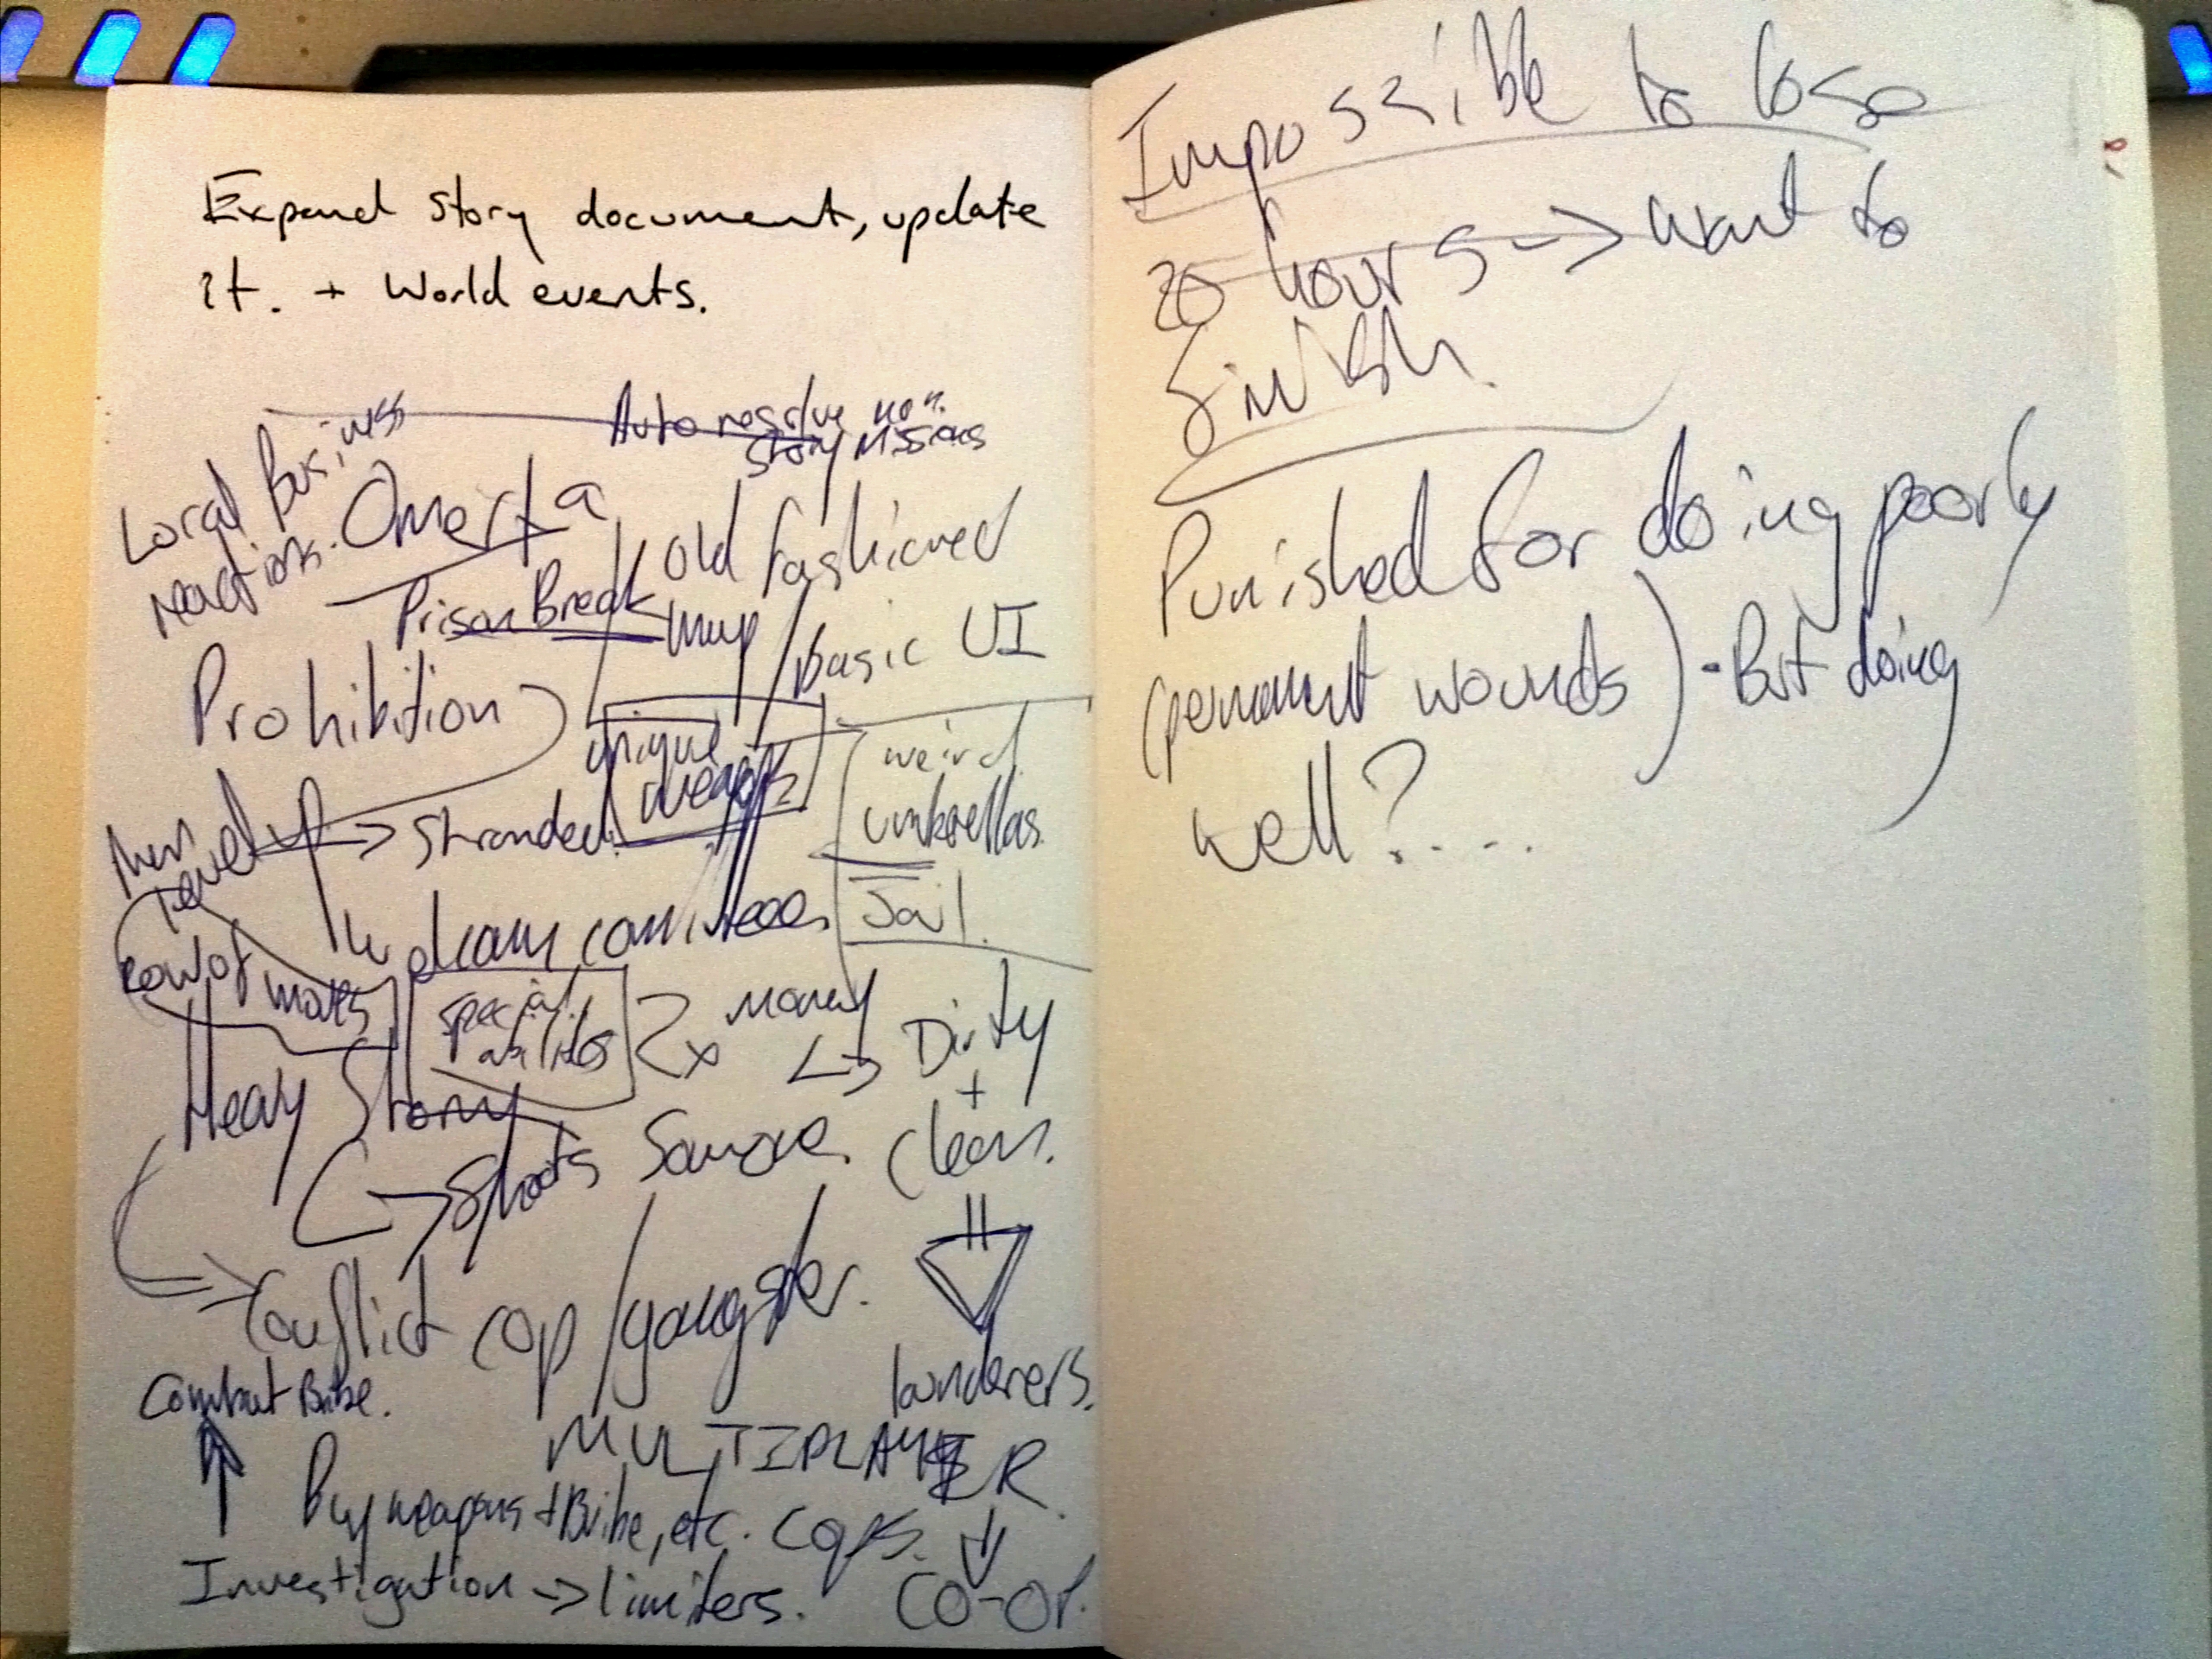 Expand story document, update
it. + World events.
Local Business
reactions.
Auto resolve non
story missions
Omerta
Prison Break
Old fashioned
map
basic UI
Prohibition
unique
weapons
weird
umbrellas.
Jail.
level up -> Stranded.
special
abilities
2x money
-> Dirty
+
Clean.
Heavy Story
-> Shoots Someone.
Conflict cop/gangster.
launderers.
Combat Bribe.
MULTIPLAYER
Buy weapons + Bribe, etc. cops.
CO-OP.
Investigation -> limiters.
Impossible to lose
20 hours -> want to
finish.
Punished for doing poorly
(permanent wounds) - But doing
well?....